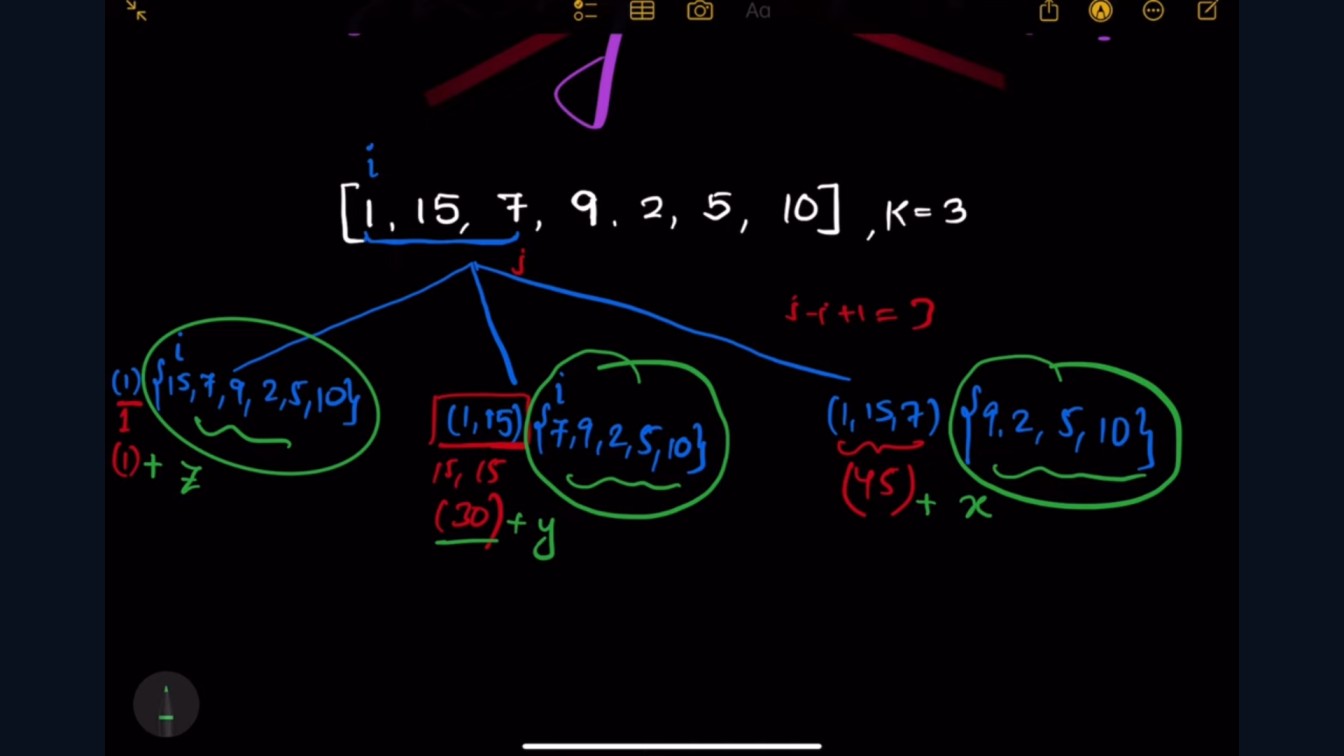 Aa
i
[1, 15, 7, 9, 2, 5, 10], K = 3
j
j - i + 1 = 3
i
(1) {15, 7, 9, 2, 5, 10}
1
(1) + z
i
(1, 15) {7, 9, 2, 5, 10}
15, 15
(30) + y
(1, 15, 7) {9, 2, 5, 10}
(45) + x